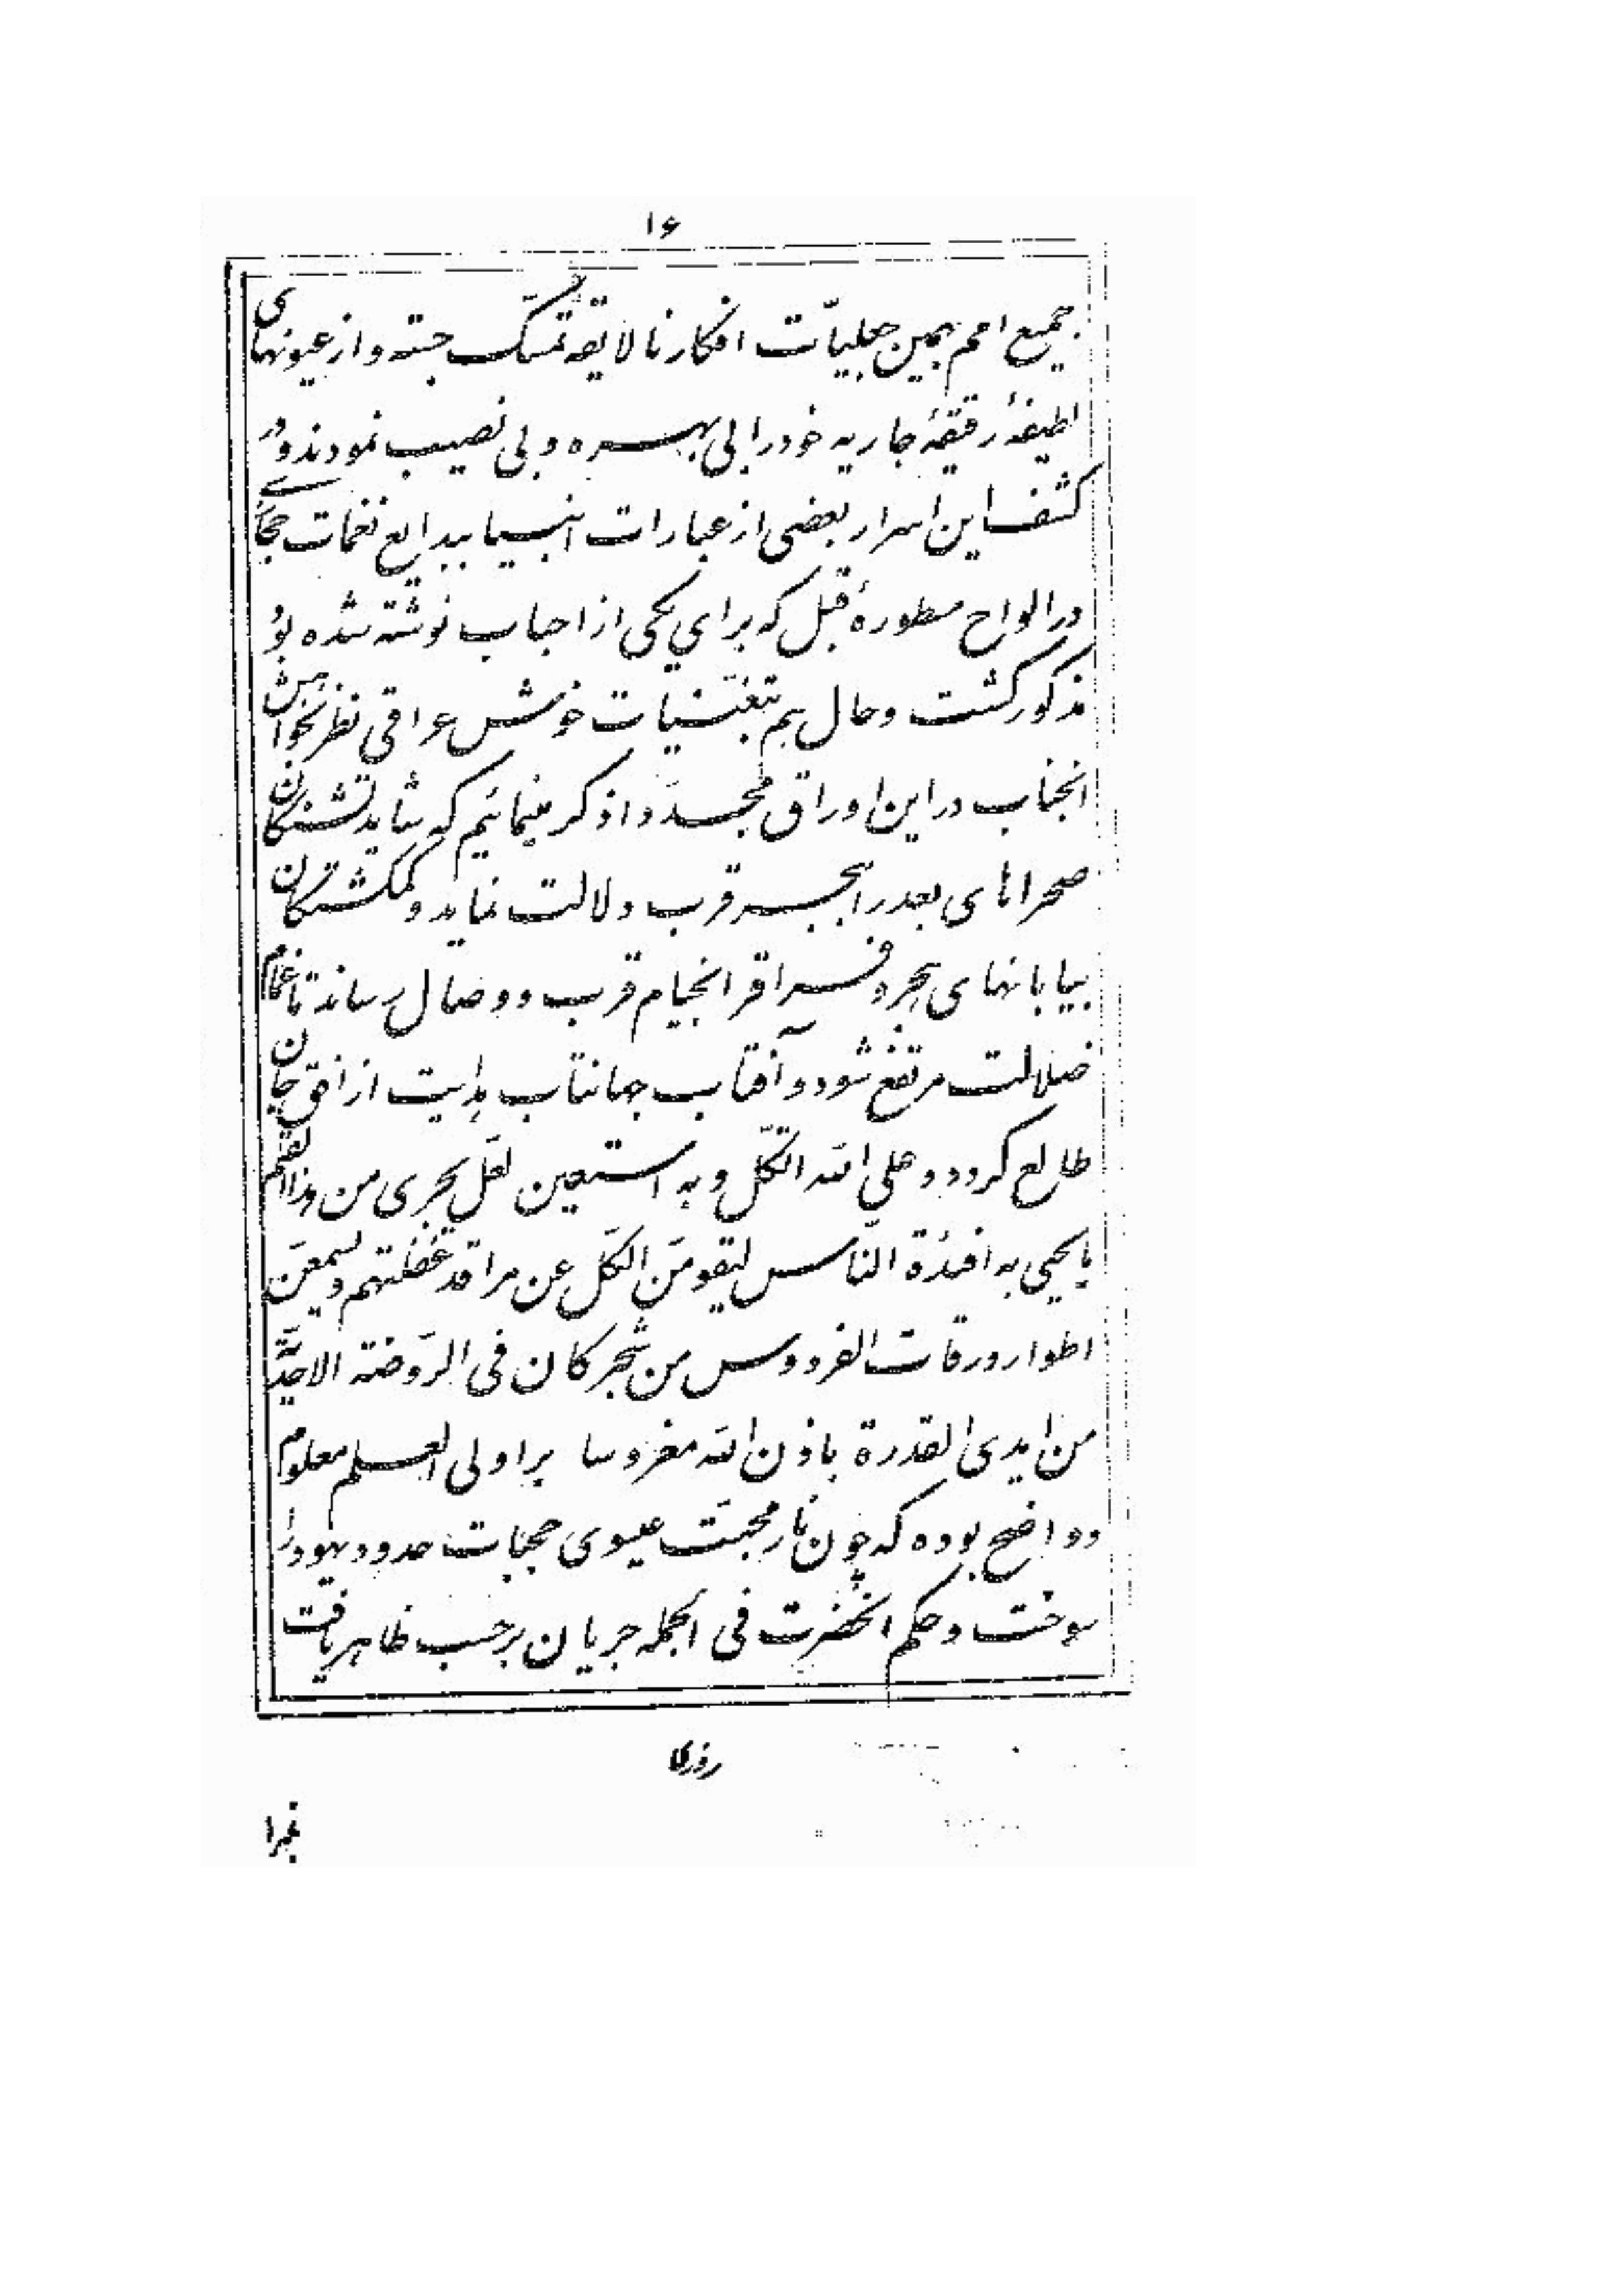 ۱۶
جمیع امم بهمین جعلیّات افکار نالایقه تمسّک جسته و از عیونهای
لطیفهٔ رقیقهٔ جاریه خود را بی بهره و بی نصیب نمودند و در
کشف این اسرار بعضی از عبارات انبیا ببدایع نغمات حجازی
در الواح مسطورهٔ قبل که برای یکی از احباب نوشته شده بود
مذکور گشت و حال هم بتغنّیات خوش عراقی نظر بخواهش
انجناب در این اوراق مجدّدا ذکر مینمائیم که شاید تشنگان
صحراهای بعد را ببحر قرب دلالت نماید و گمگشتگان
بیابانهای هجر و فراقرا بخیام قرب و وصال رساند تا غمام
ضلالت مرتفع شود و آفتاب جهانتاب هدایت از افق جان
طالع گردد و علی الله اتّکل و به استعین لعلّ یجری من هذا القلم
ما یحیی به افئدة النّاس لیقومنّ الکلّ عن مراقد غفلتهم و یسمعنّ
اطوار ورقات الفردوس من شجر کان فی الرّوضة الاحدیّة
من ایدی القدرة باذن الله مغروسا بر اولی العلم معلوم
و واضح بوده که چون نار محبّت عیسوی حجبات حدود یهود را
سوخت و حکم انحضرت فی الجمله جریان بر حسب ظاهر یافت
روزی